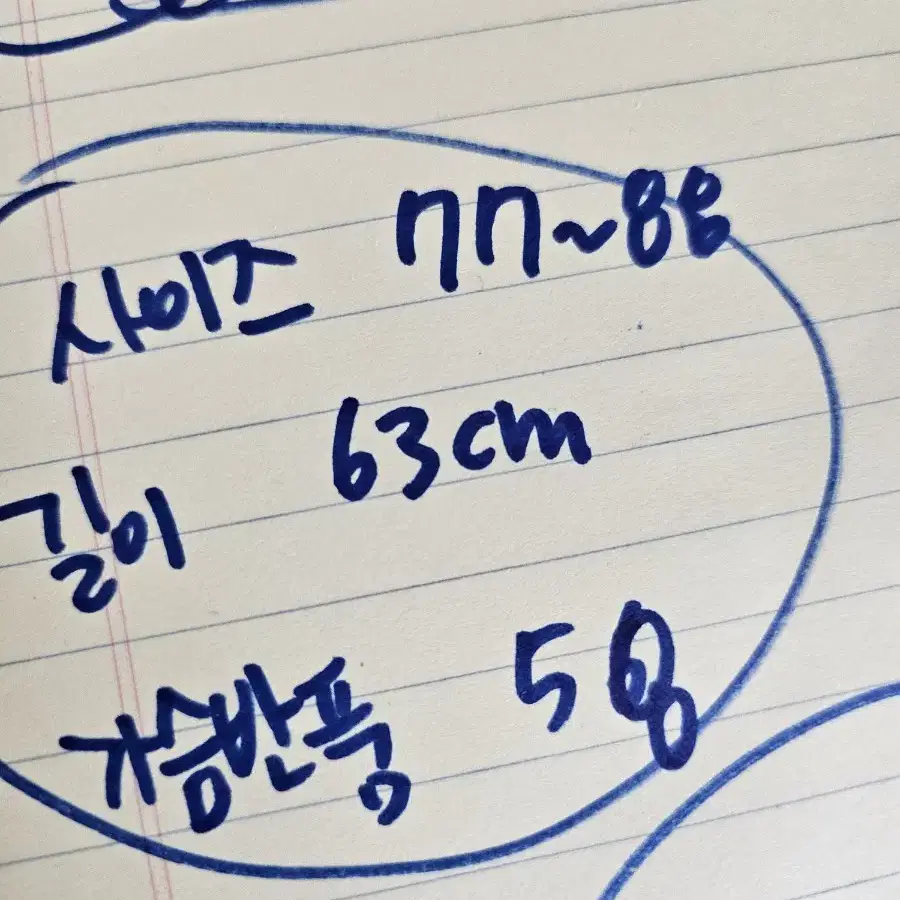 사이즈 77~88
길이 63cm
가슴반폭 58